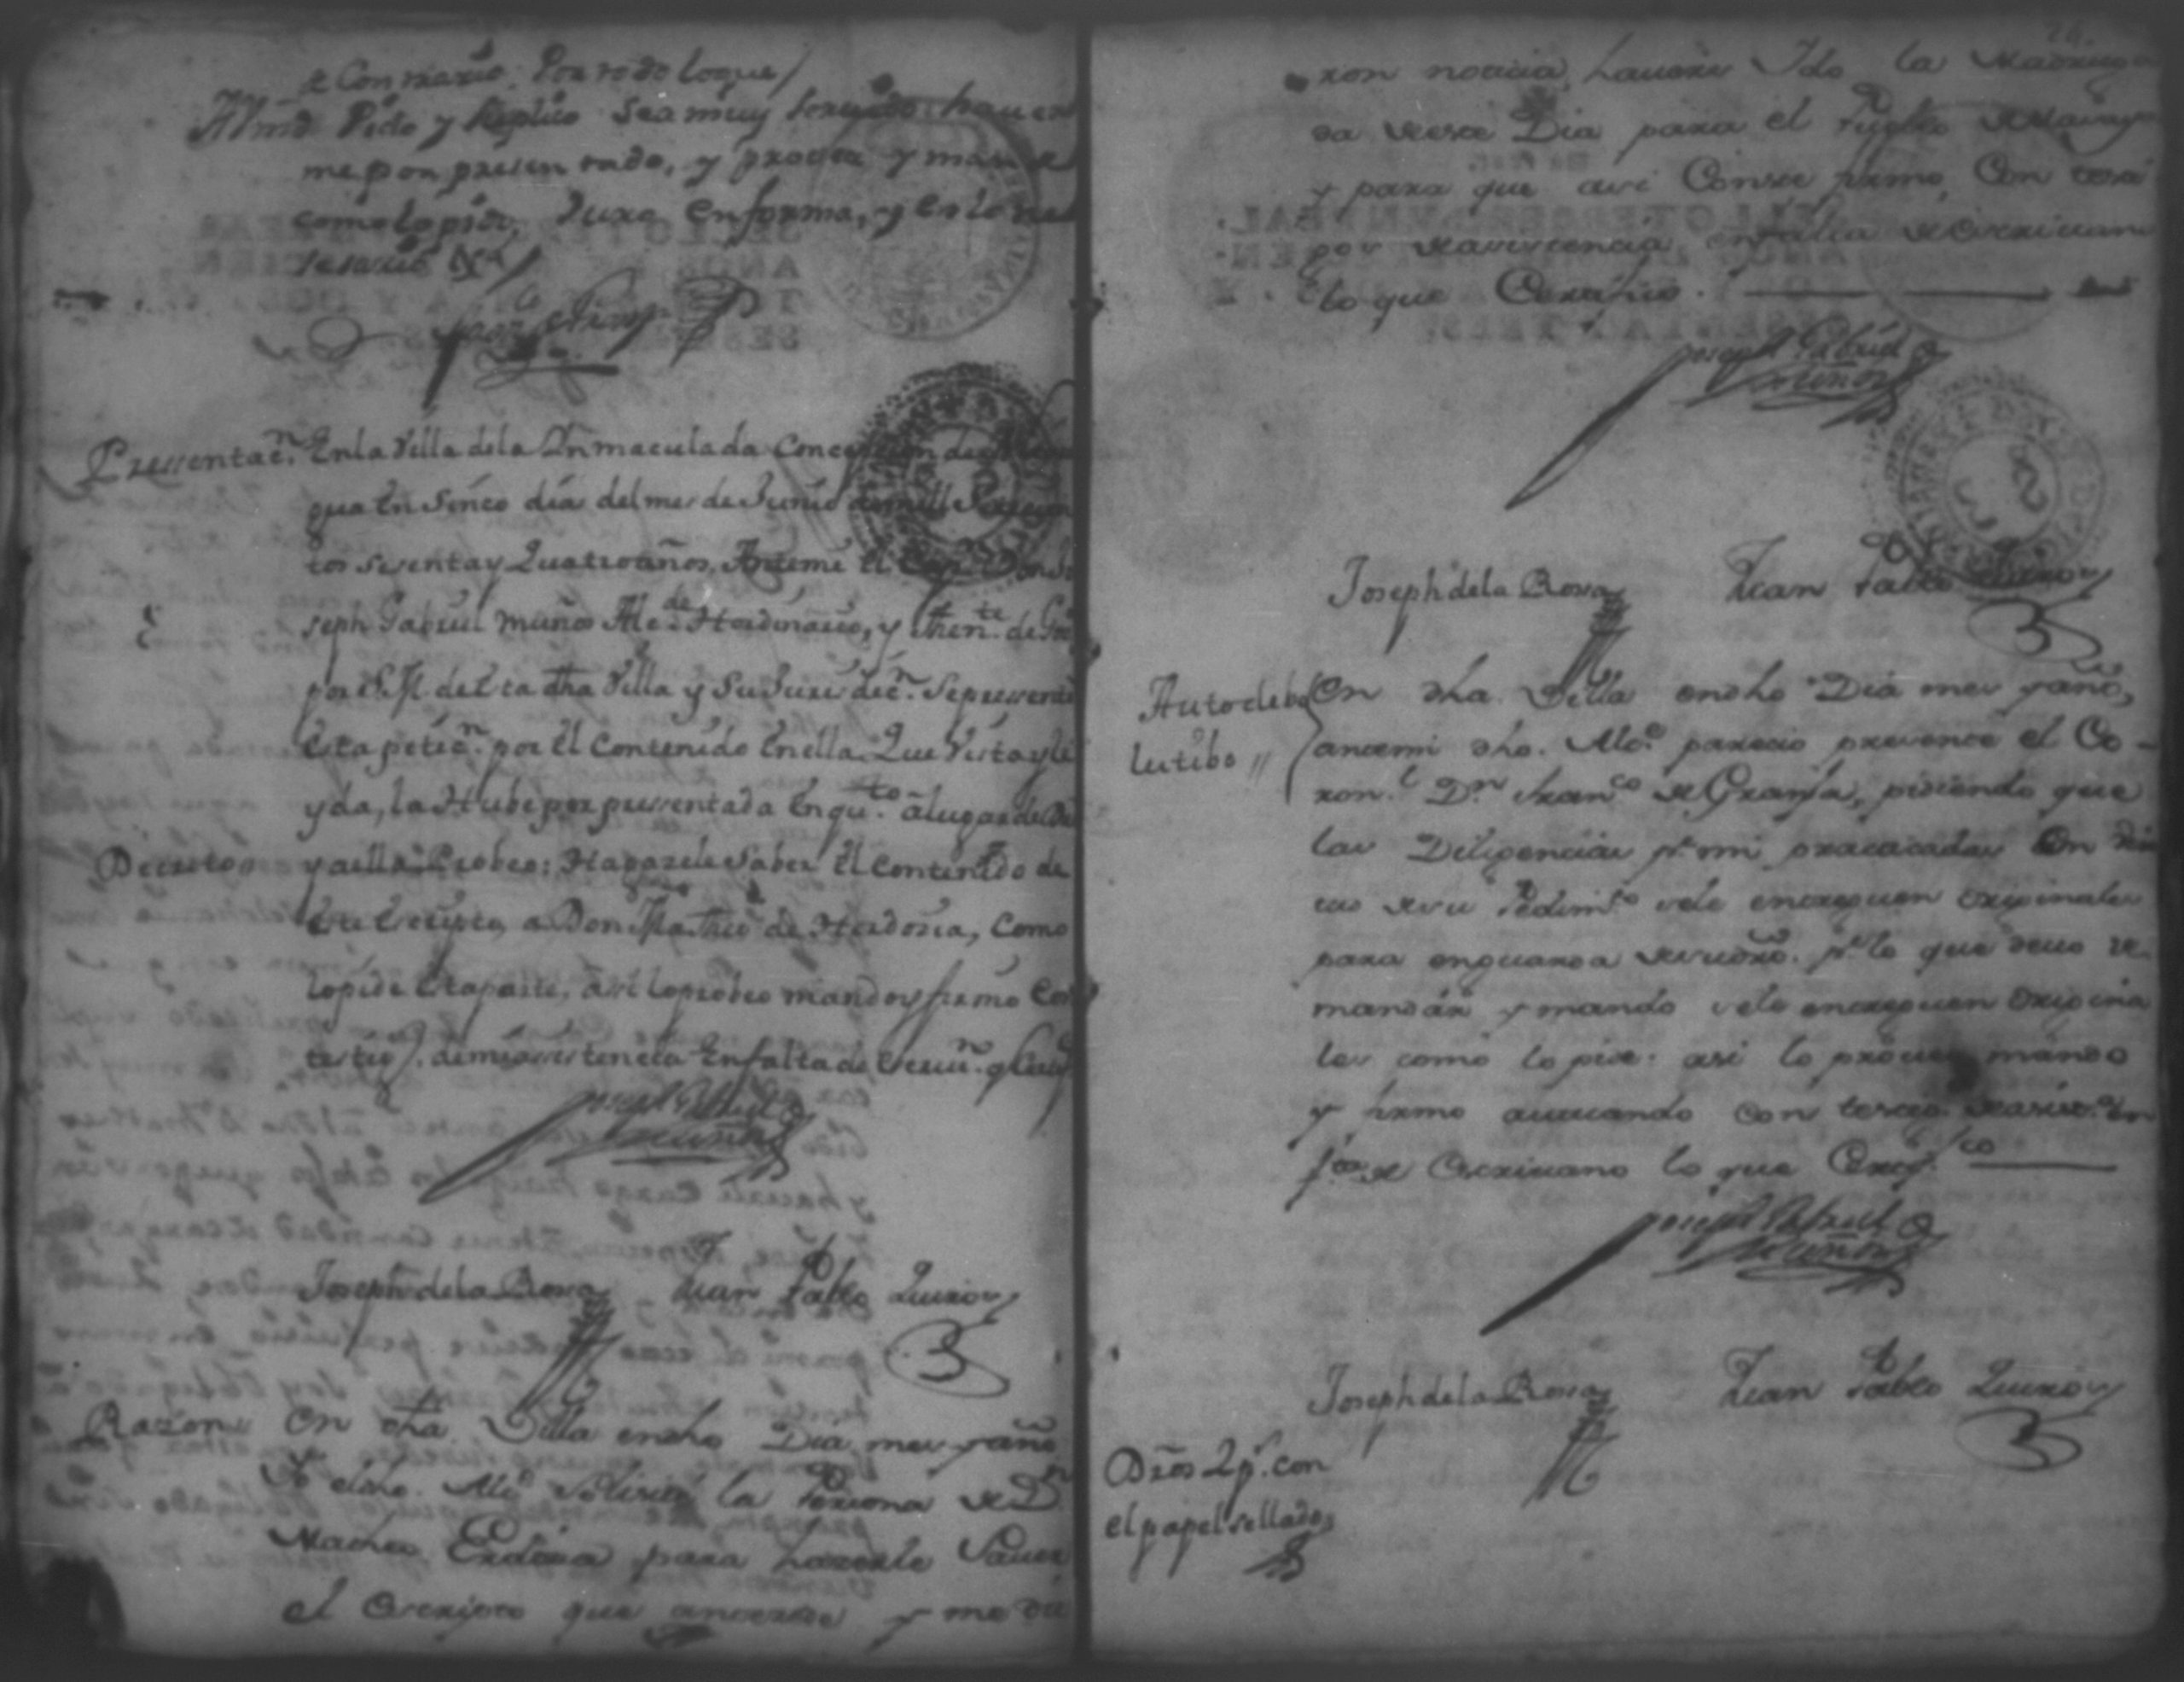 de Contrario. Por todo loque /
A Vmd Pido y suplico sea muy servido haver
me por presentado, y provea y mande
como lo pido, Juro en forma, y en lo ne
sesario &ca /
Presentacn. En la Villa dela Inmaculada Concepcion de
gua En Sinco dia del mes de Junio de mill Setesien
tos sesenta y Quatro años, Ante mi El Capn. Don Jo
seph Gabriel Muños Alcde. Hordinario, y Thente. de
por S.M. de Esta dha Villa y Su Jurisdicn. Se presento
Esta peticn. por El Contenido En ella Que Vista y le
yda, la Hube por pressentada En quto. â lugar de
Decreto y a ella Probeo: Hagasele Saber El Contenido de
Este Escripto, a Don Matheo de Hordoña, Como
lo pide Esta parte, asi lo probeo mando y firmo Con
testigs. de mi asistencia En falta de Escrivn.
Joseph Gabriel
Muños
Joseph de la Rosa Juan Pablo Quiros
Razon En dha. Villa en dho Dia mes y año
Yo el dho. Alcde. solisite la Persona de Dn
Matheo Erdoña para hacerle Saver
el Escripto que antesede y me di
ron noticia haverse Ydo la Madruga
da de este Dia para el Pueblo de
y para que asi Conste firmo Con testi
gos de asistencia en falta de Escrivano
lo que Certifico.
Joseph Gabriel
Muños
Joseph de la Rosa Juan Pablo Quiros
Auto debo En dha. Villa en dho Dia mes y año,
lutibo // ante mi dho. Alcde. parecio presente el Co-
ronl. Dn. Franco de Granja, pidiendo que
las Diligencias pr. mi practicadas En
de su Pedimto. se le entreguen originales
para en guarda de su dro. pr. lo que devo de
mandar y mando se le entreguen origina
les como lo pide. asi lo provei mando
y firmo actuando con testigs. de asista. En
fta. de Escrivano lo que Certifco
Joseph Gabriel
Muños
Joseph de la Rosa Juan Pablo Quiros
Dros 2 ps. con
el papel sellado